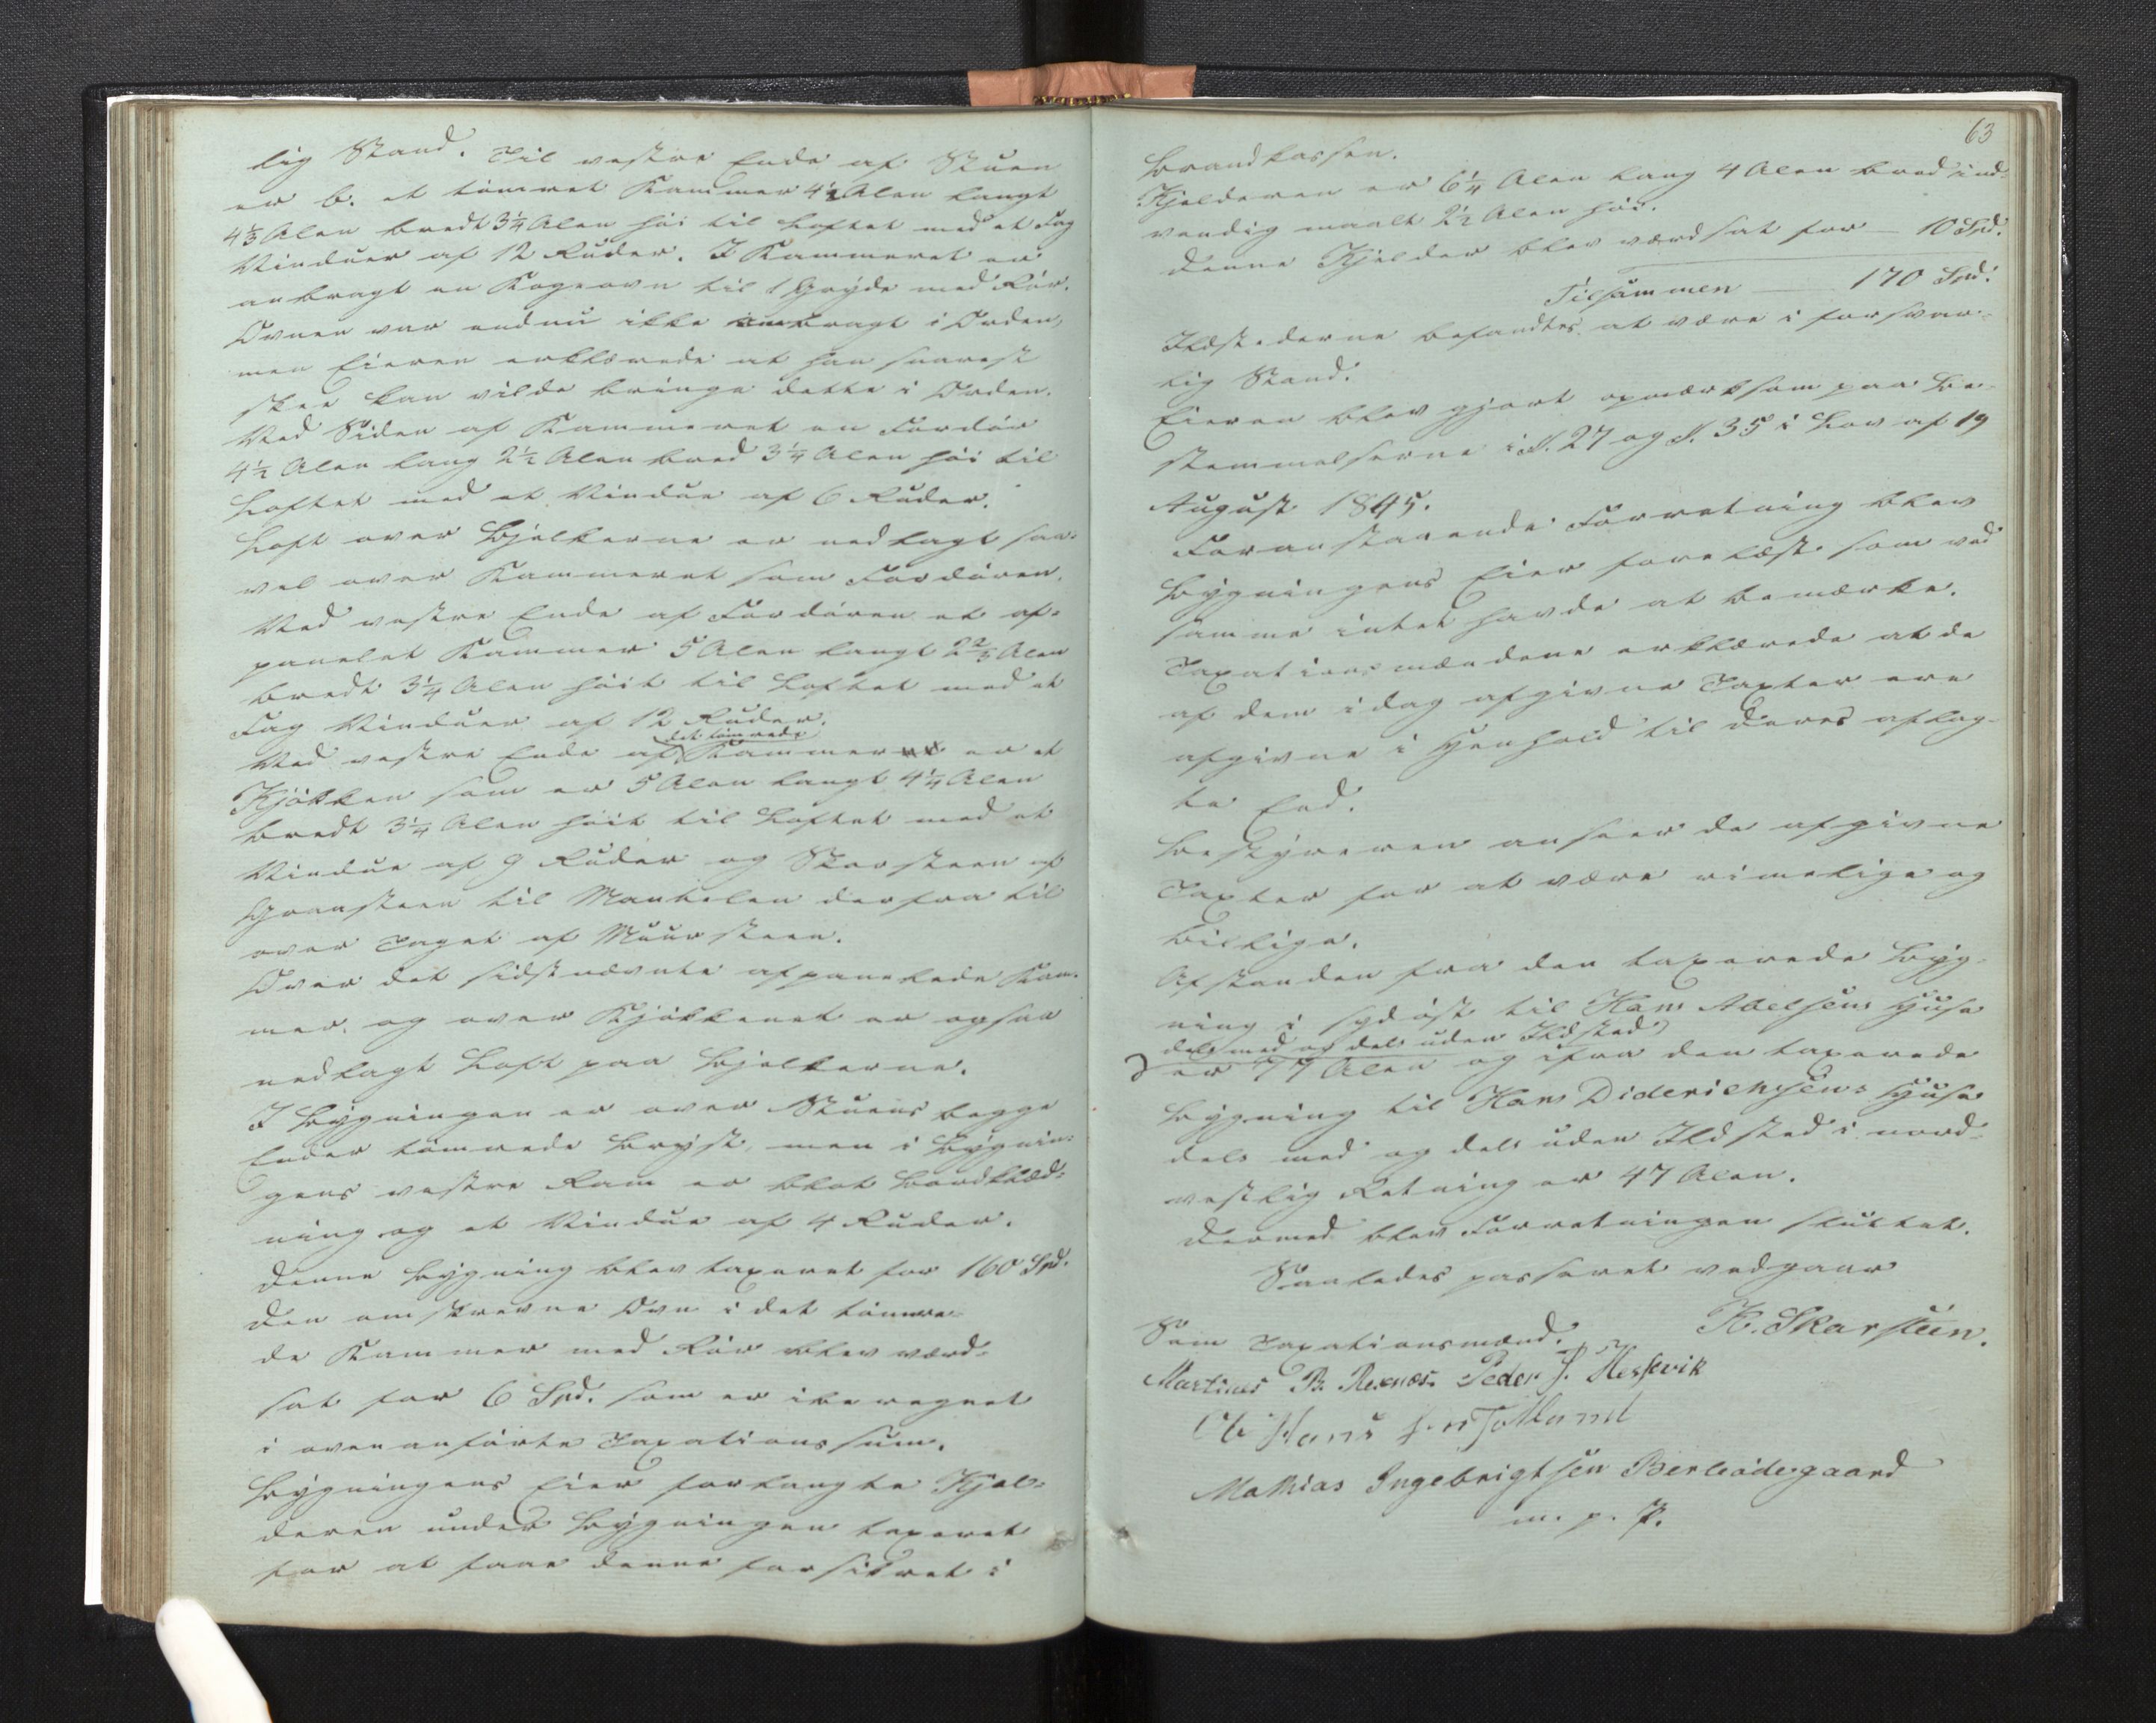 lig Stand. Til vestre Ende af Stuen
er b. et tømret Kammer 4½ Alen langt
4⅓ Alen bredt 3¼ Alen höi til Loftet med et Fag
Vinduer af 12 Ruder. I Kammeret er
anbragt en Kogeovn til 1 Gryde med Rör.
Ovnen var endnu ikke bragt i Orden,
men Eieren erklærede at han snarest
skee kan vilde bringe dette i Orden.
Ved Siden af Kammeret en Fordör
4½ Alen lang 2½ Alen bred 3¼ Alen höi til
Loftet med et Vindue af 6 Ruder.
Loft over Bjelkerne er nedlagt saa-
vel over Kammeret som Fordören.
Ved vestre Ende af Fordören et af-
panelet Kammer 5 Alen langt 2⅔ Alen
bredt 3¼ Alen höit til Loftet med et
Fag Vinduer af 12 Ruder.
det tömrede
Ved vestre Ende af Kammer er et
Kjökken som er 5 Alen langt 4¼ Alen
bredt 3¼ Alen höit til Loftet med et
Vindue af 9 Ruder og Skorsteen af
Graasteen til Mantelen derfra til
over Taget af Muursteen.
Over det sidstnævnte afpanelede Kam-
mer og over Kjökkenet er ogsaa
nedlagt Loft paa Bjelkerne.
I Bygningen er over Stuens begge
Ender tömrede Bryst, men i Bygnin-
gens vestre Ram er blot Bordklæd-
ning og et Vindue af 4 Ruder.
Denne Bygning blev taxeret for 160 Spd.
Den omskrevne Ovn i det tömre-
de Kammer med Rör blev værd-
sat for 6 Spd. som er iberegnet
i ovenanförte Taxationssum.
Bygningens Eier forlangte Kjel-
deren under Bygningen taxeret
for at faae denne forsikret i
63
Brandkassen.
Kjelderen er 6¼ Alen lang 4 Alen bred ind-
vendig maalt 2½ Alen höi.
Denne Kjelder blev værdsat for — 10 Spd.
Tilsammen — 170 Spd.
Ildstederne befandtes at være i forsvar-
lig Stand.
Eieren blev gjort opmærksom paa Be-
stemmelserne i §. 27 og §. 35 i Lov af 19
August 1845.
Foranstaaende Forretning blev
Bygningens Eier forelæst som ved
samme intet havde at bemærke.
Taxationsmændene erklærede at de
af dem idag afgivne Taxter ere
afgivne i Henhold til deres aflag-
te Eed.
Bestyreren anseer de afgivne
Taxter for at være rimelige og
billige.
Afstanden fra den taxerede Byg-
ning i sydöst til Hans Abelsens Huse
dels med og dels uden Ildsted
er 77 Alen og ifra den taxerede
Bygning til Hans Diderichsens Huse
dels med og dels uden Ildsted i nord-
vestlig Retning er 47 Alen.
Dermed blev Forretningen sluttet.
Saaledes passeret vedgaaer
H. Skarsteen.
Som Taxationsmænd.
Martinus B. Rexnæs. Peder J. Hessevik
Hans
Mathias Ingebrigtsen
m. p. P.